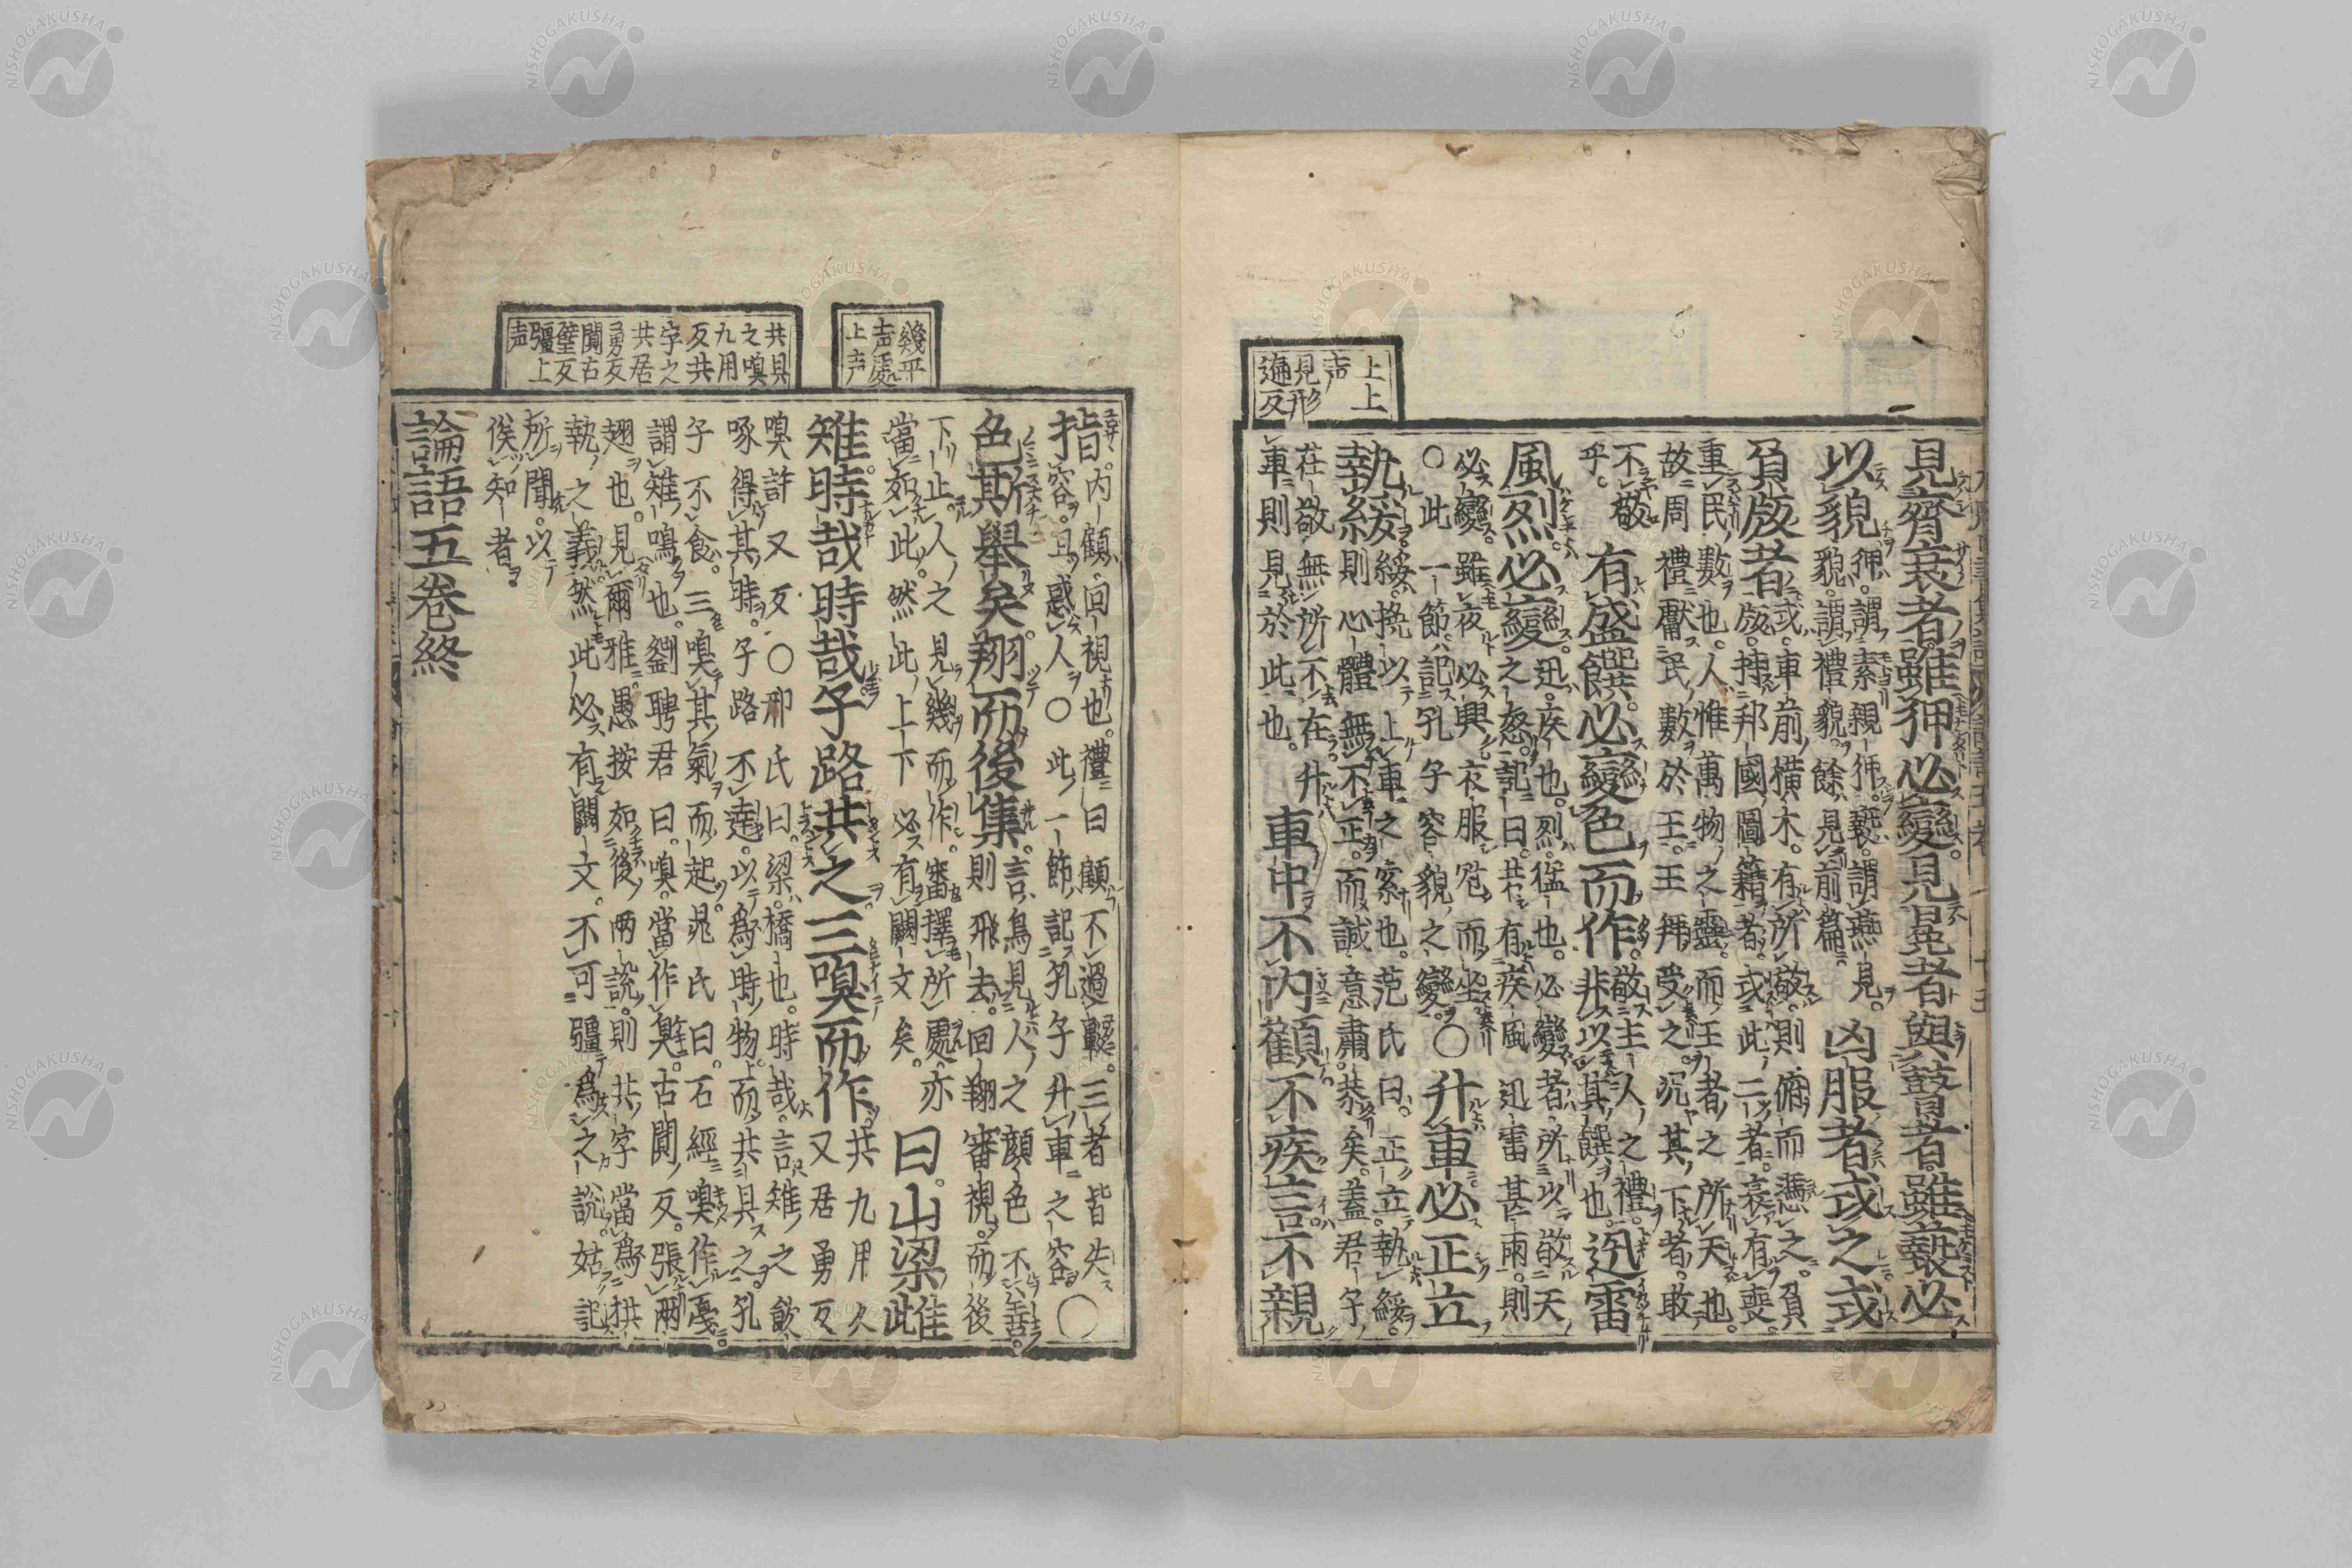 上上
声
見形
遍反
見齊衰者。雖狎必變。見冕者與瞽者。雖褻必
以貌。
狎。謂素親狎。褻。謂燕見。
貌。謂禮貌。餘見前篇。
凶服者式之。式
負版者。
式。車前橫木。有所敬。則俯而憑之。負
版。持邦國圖籍者。式此二者。哀有喪。
重民數也。人惟萬物之靈。而王者之所天也。
故周禮獻民數於王。王拜受之。況其下者。敢
不敬
乎。
有盛饌。必變色而作。
敬主人之禮。
非以其饌也。
迅雷
風烈。必變。
迅。疾也。烈。猛也。必變者。所以敬天
之怒。記曰。若有疾風迅雷甚雨。則
必變。雖夜必興衣服冠而坐。
○此一節。記孔子容貌之變。
○升車必正立
執綏。
綏。挽以上車之索也。范氏曰。正立執綏。
則心體無不正。而誠意肅恭矣。蓋君子
莊敬無所不在。升
車則見於此也。
車中不內顧。不疾言。不親
幾平
声處
上声
共具
之嗅
九用
反共
字之
共居
勇反
闃古
璧反
彊上
声
指。
內顧。回視也。禮曰。顧不過轂。三者皆失
容。且惑人。○此一節。記孔子升車之容。
○
色斯舉矣。翔而後集。
言鳥見人之顏色不善。
則飛去。回翔審視。而後
下止。人之見幾而作。審擇所處。亦
當如此。然此上下必有闕文矣。
曰。山梁雌
雉。時哉時哉。子路共之。三嗅而作。
共九用久
又居勇反
嗅許又反○邢氏曰。梁。橋也。時哉。言雉之飲
啄得其時。子路不達。以為時物而共具之。孔
子不食。三嗅其氣而起。晁氏曰。石經嗅作戛。
謂雉鳴也。劉聘君曰。嗅。當作狊。古闃反。張兩
翅也。見爾雅。愚按如後兩說。則共字當為拱
執之義。然此必有闕文。不可彊為之說。姑記
所聞。以
俟知者。
論語五卷終